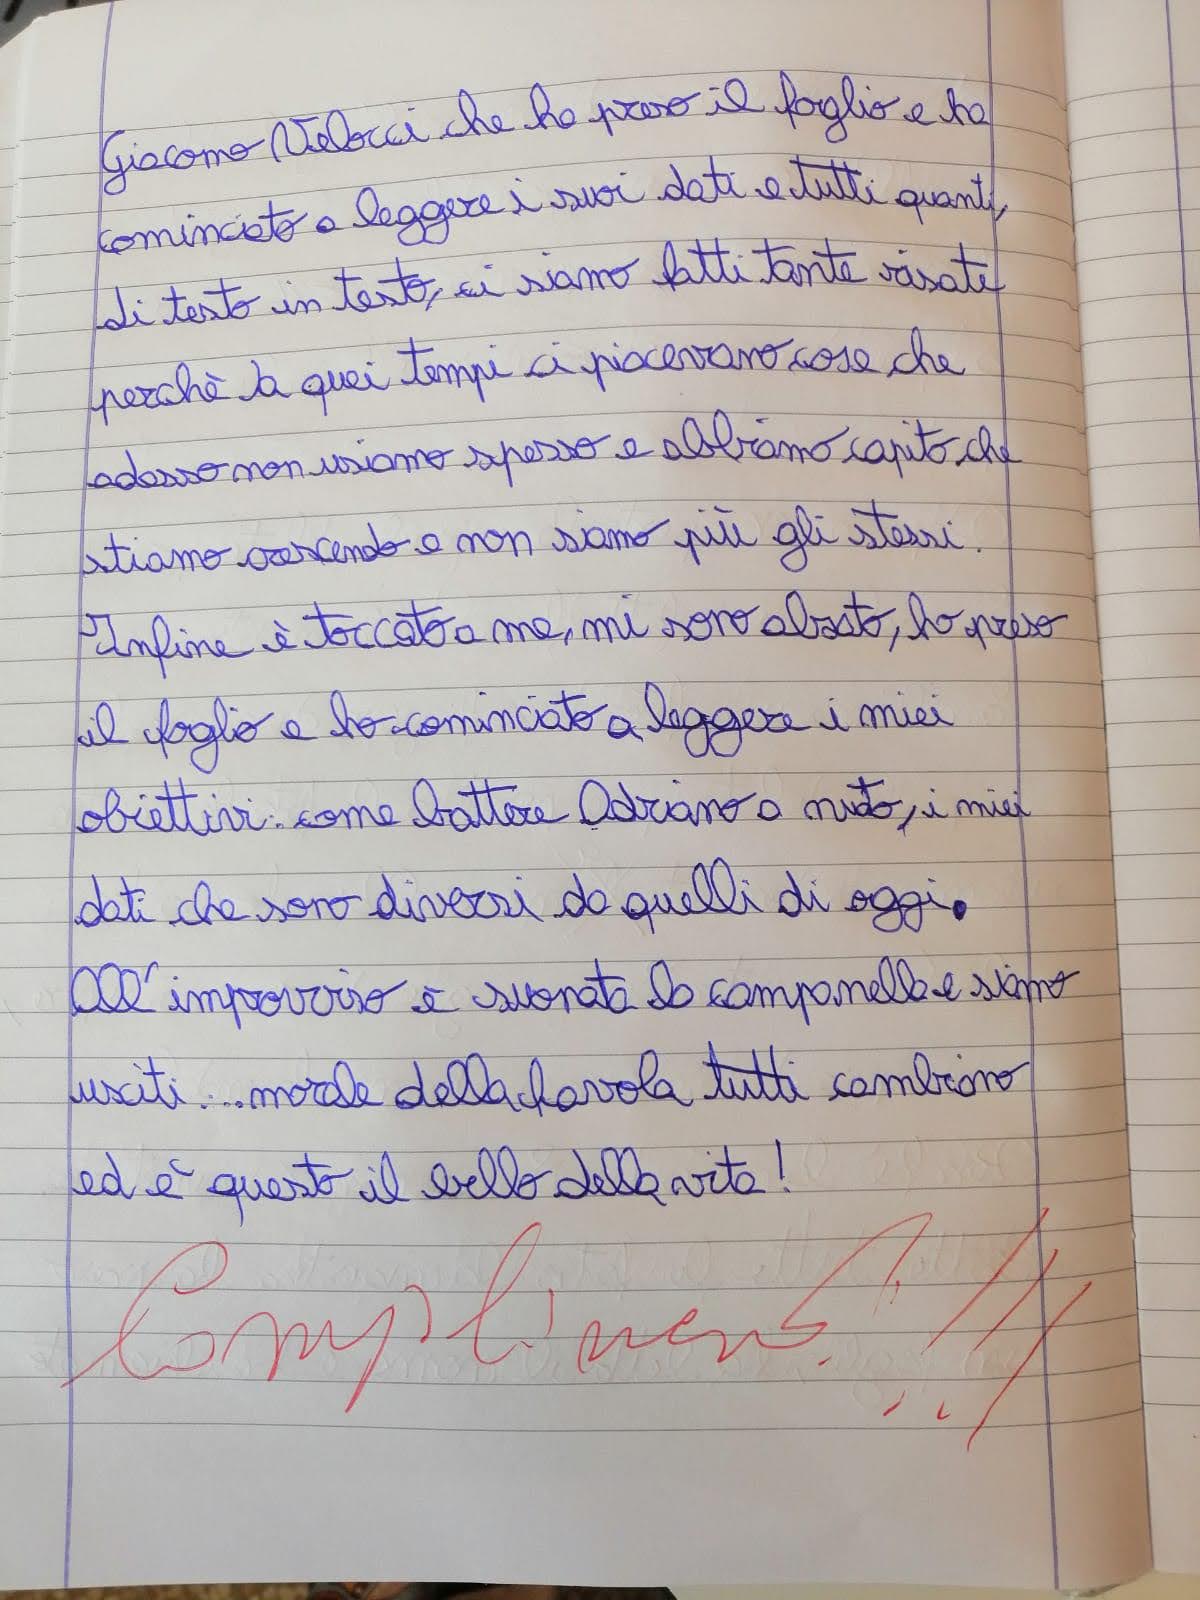 Giacomo Velocci che ha preso il foglio e ha
cominciato a leggere i suoi dati e tutti quanti,
di testo in testo, ci siamo fatti tante risate
perchè a quei tempi ci piacevano cose che
adesso non usiamo spesso e abbiamo capito che
stiamo crescendo e non siamo più gli stessi.
Infine è toccato a me, mi sono alzato, ho preso
il foglio e ho cominciato a leggere i miei
obiettivi: come battere Adriano a nuoto, i miei
dati che sono diversi da quelli di oggi.
All'improvviso è suonata la campanella e siamo
usciti... morale della favola tutti cambiano
ed è questo il bello della vita!
Complimenti!!!